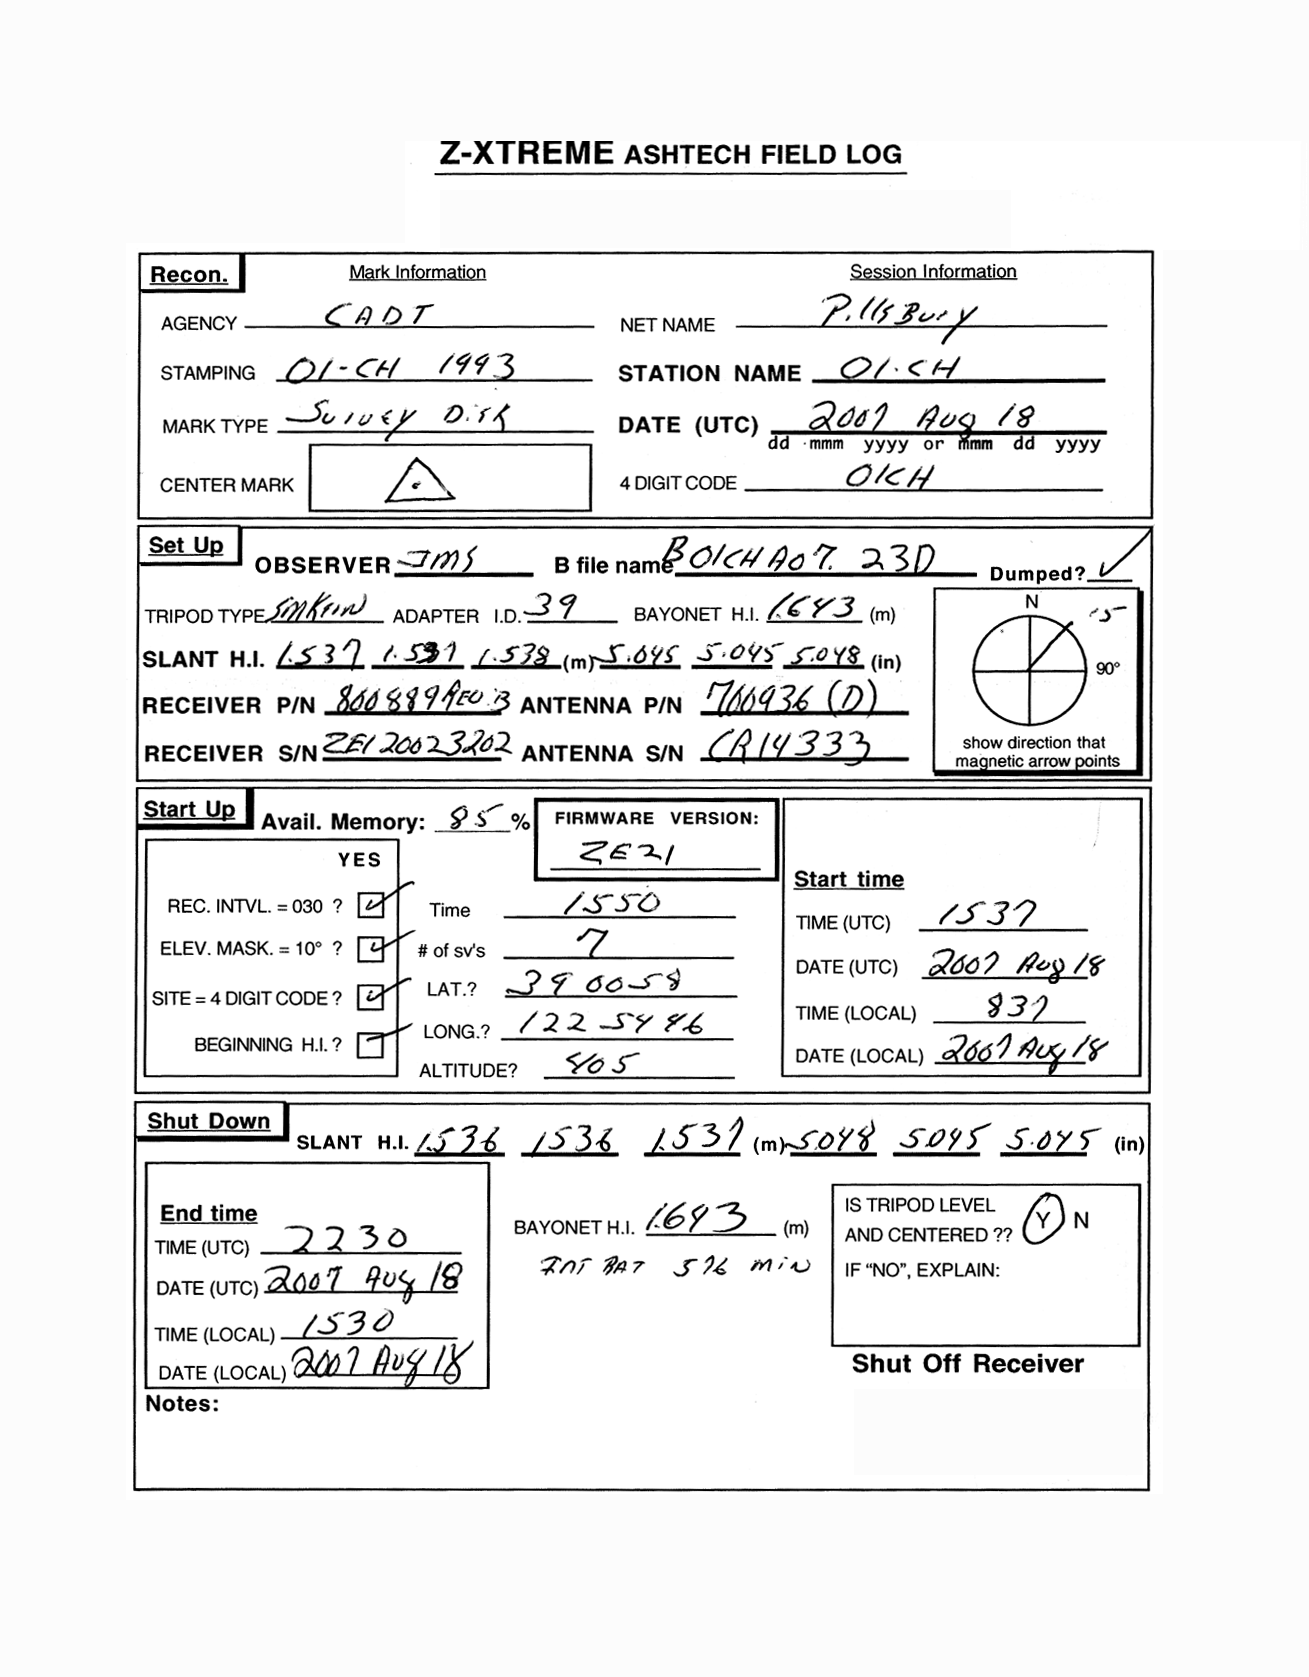 Z-XTREME ASHTECH FIELD LOG
Recon. Mark Information Session Information
AGENCY CADT NET NAME PillsBury
STAMPING 01-CH 1993 STATION NAME 01.CH
MARK TYPE Survey Disk DATE (UTC) 2007 Aug 18
dd mmm yyyy or mmm dd yyyy
CENTER MARK 4 DIGIT CODE 01CH
Set Up OBSERVER JMS B file name B01CHA07.23D Dumped?
TRIPOD TYPE ADAPTER I.D. 39 BAYONET H.I. 1.643 (m)
N 15
90°
SLANT H.I. 1.537 1.537 1.538 (m) 5.045 5.045 5.048 (in)
RECEIVER P/N 800889 REV.B ANTENNA P/N 700936 (D)
RECEIVER S/N ZE120023202 ANTENNA S/N CR14333
show direction that
magnetic arrow points
Start Up Avail. Memory: 85 % FIRMWARE VERSION:
ZE21
YES
REC. INTVL. = 030 ? Time 1550
ELEV. MASK. = 10° ? # of sv's 7
SITE = 4 DIGIT CODE ? LAT.? 39 00 58
BEGINNING H.I. ? LONG.? 122 54 46
ALTITUDE? 405
Start time
TIME (UTC) 1537
DATE (UTC) 2007 Aug 18
TIME (LOCAL) 837
DATE (LOCAL) 2007 Aug 18
Shut Down SLANT H.I. 1.536 1536 1.537 (m) 5.048 5.045 5.045 (in)
End time
TIME (UTC) 2230
DATE (UTC) 2007 Aug 18
TIME (LOCAL) 1530
DATE (LOCAL) 2007 Aug 18
BAYONET H.I. 1.643 (m)
INT BAT 576 min
IS TRIPOD LEVEL Y N
AND CENTERED ??
IF "NO", EXPLAIN:
Shut Off Receiver
Notes: